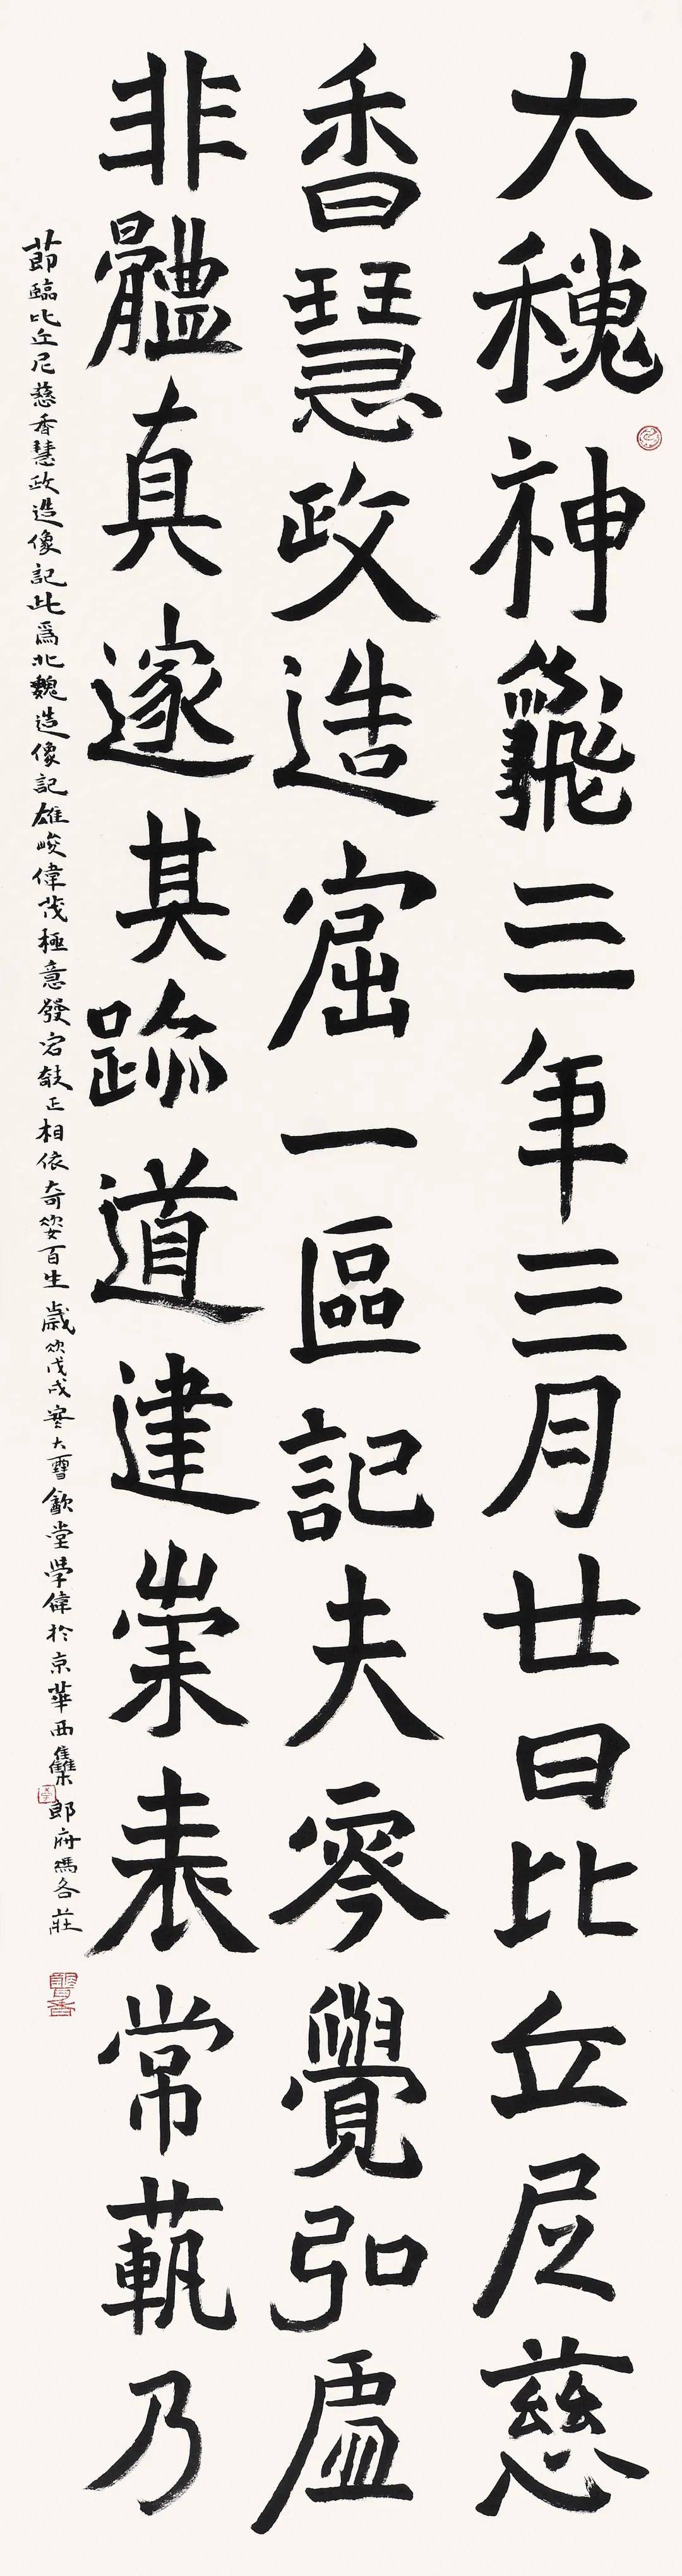 大魏神龜三年三月廿日比丘尼慈
香慧政造窟一區記夫零覺弘虛
非體真邃其迹道建崇表常軌乃
節臨比丘尼慈香慧政造像記此為北魏造像記雄峻偉茂極意發宕欹正相依奇姿百生歲次戊戌寒大雪龢堂學偉於京華西集郎府馮各莊